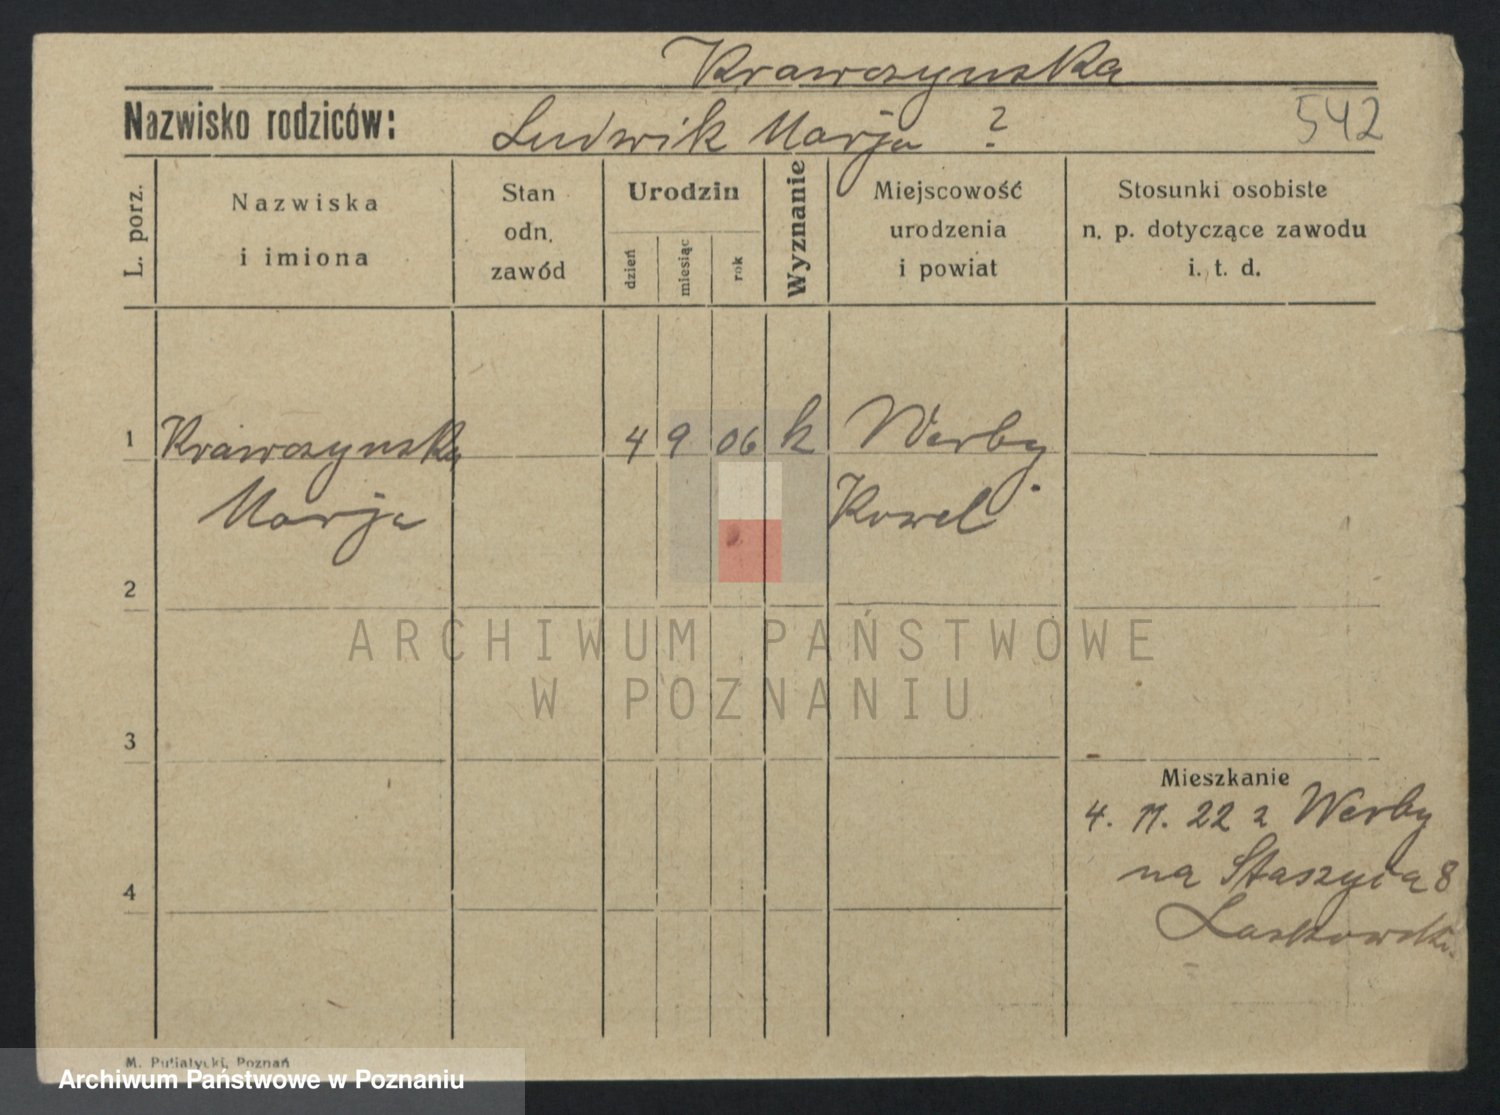 Krawczynska
Nazwisko rodziców: Ludwik Marja ?
542
L. porz.
Nazwiska
i imiona
Stan
odn.
zawód
Urodzin
dzień
miesiąc
rok
Wyznanie
Miejscowość
urodzenia
i powiat
Stosunki osobiste
n. p. dotyczące zawodu
i. t. d.
1 Krawczynska 4 9 06 k Werby
Marja Kowel
2
ARCHIWUM PAŃSTWOWE
W POZNANIU
3
Mieszkanie
4. 11. 22 z Werby
na Staszyca 8
4
Laskowski
M. Putiatycki, Poznań
Archiwum Państwowe w Poznaniu